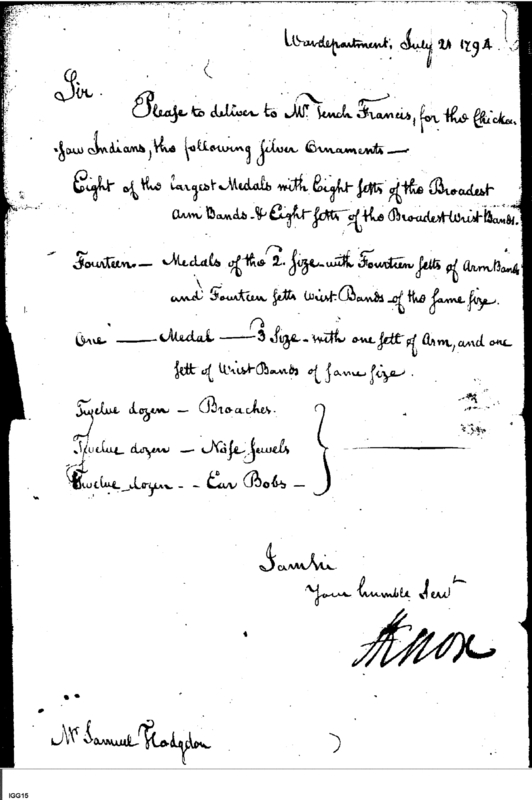 Wardepartment, July 21 1794.
Sir.
Please to deliver to Mr. Tench Francis, for the Chicka-
-saw Indians, the following Silver Ornaments —
Eight of the largest Medals with Eight setts of the Broadest
Arm Bands. & Eight setts of the Broadest Wrist Bands.
Fourteen. — Medals of the 2. Size - with Fourteen setts of Arm Bands
and Fourteen setts Wrist Bands - of the same size.
One — Medal — 3 Size - with one sett of Arm, and one
sett of Wrist Bands of same size.
Twelve dozen — Broaches.
Twelve dozen — Nose Jewels
Twelve dozen - - Ear Bobs —
I am Sir
Your humble Servt
HKnox
Mr Samuel Hodgdon
IGG15